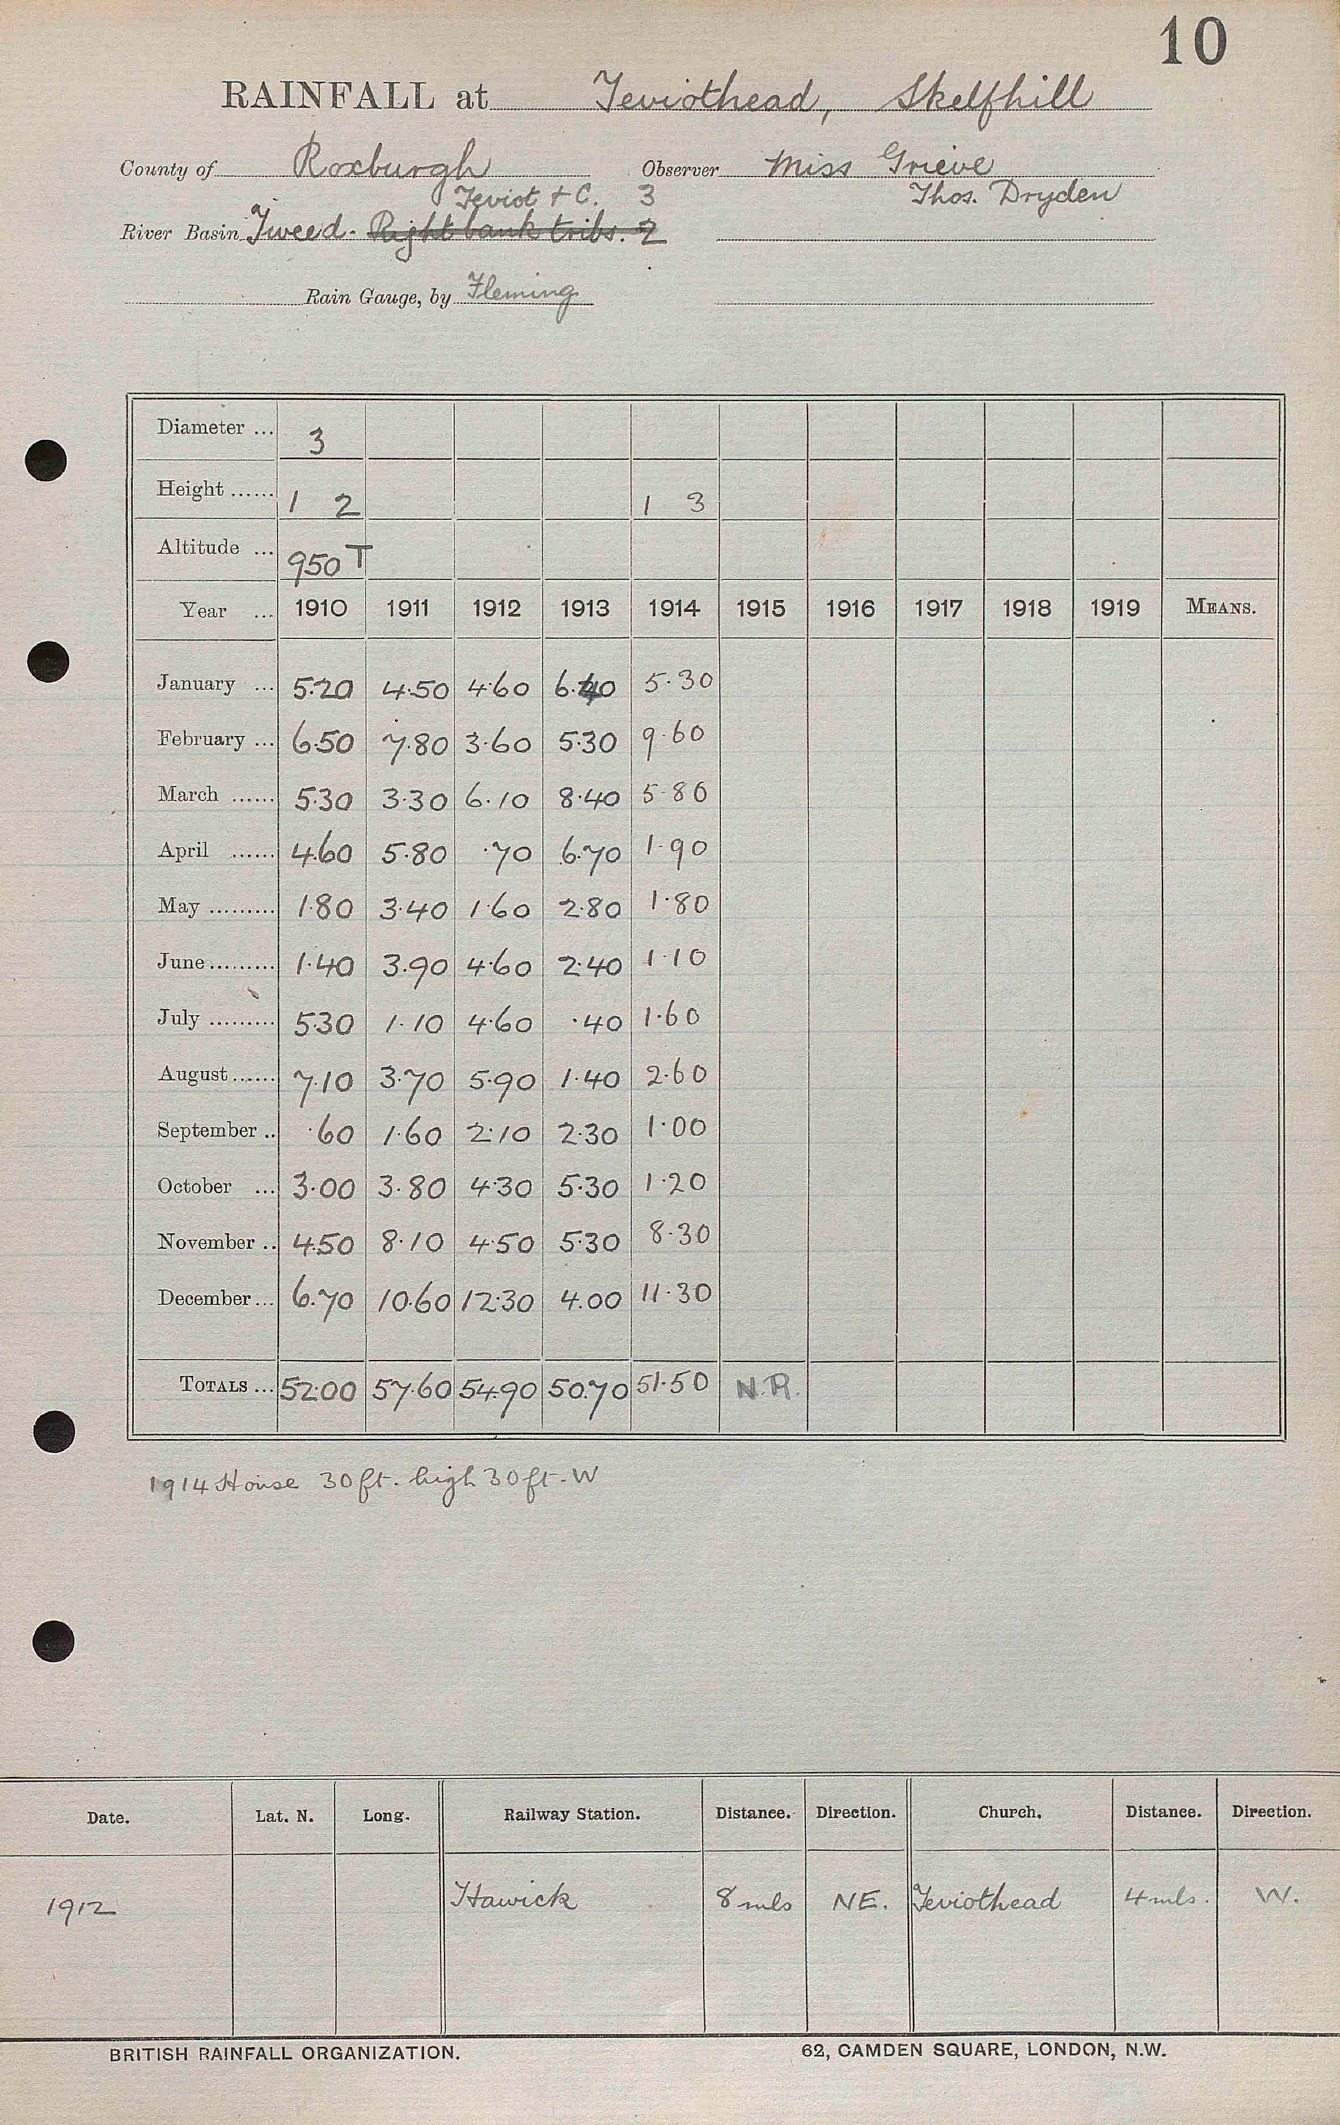 10
RAINFALL at Teviothead, Skelfhill
County of Roxburgh Observer Miss Grieve
Teviot + C. 3 Thos. Dryden
River Basin Tweed. Right bank tribs. 2
Rain Gauge, by Fleming
Diameter ... 3
Height ...... 1 2 1 3
Altitude ... 950 T
Year ... 1910 1911 1912 1913 1914 1915 1916 1917 1918 1919 MEANS.
January ... 5.20 4.50 4.60 6.40 5.30
February ... 6.50 7.80 3.60 5.30 9.60
March ...... 5.30 3.30 6.10 8.40 5.80
April ...... 4.60 5.80 .70 6.70 1.90
May ......... 1.80 3.40 1.60 2.80 1.80
June ......... 1.40 3.90 4.60 2.40 1.10
July ......... 5.30 1.10 4.60 .40 1.60
August ...... 7.10 3.70 5.90 1.40 2.60
September .. .60 1.60 2.10 2.30 1.00
October ... 3.00 3.80 4.30 5.30 1.20
November .. 4.50 8.10 4.50 5.30 8.30
December ... 6.70 10.60 12.30 4.00 11.30
TOTALS ... 52.00 57.60 54.90 50.70 51.50 N.R.
1914 House 30ft. high 30ft. W
Date. Lat. N. Long. Railway Station. Distance. Direction. Church. Distance. Direction.
1912 Hawick 8 mls NE. Teviothead 4 mls. W.
BRITISH RAINFALL ORGANIZATION. 62, CAMDEN SQUARE, LONDON, N.W.